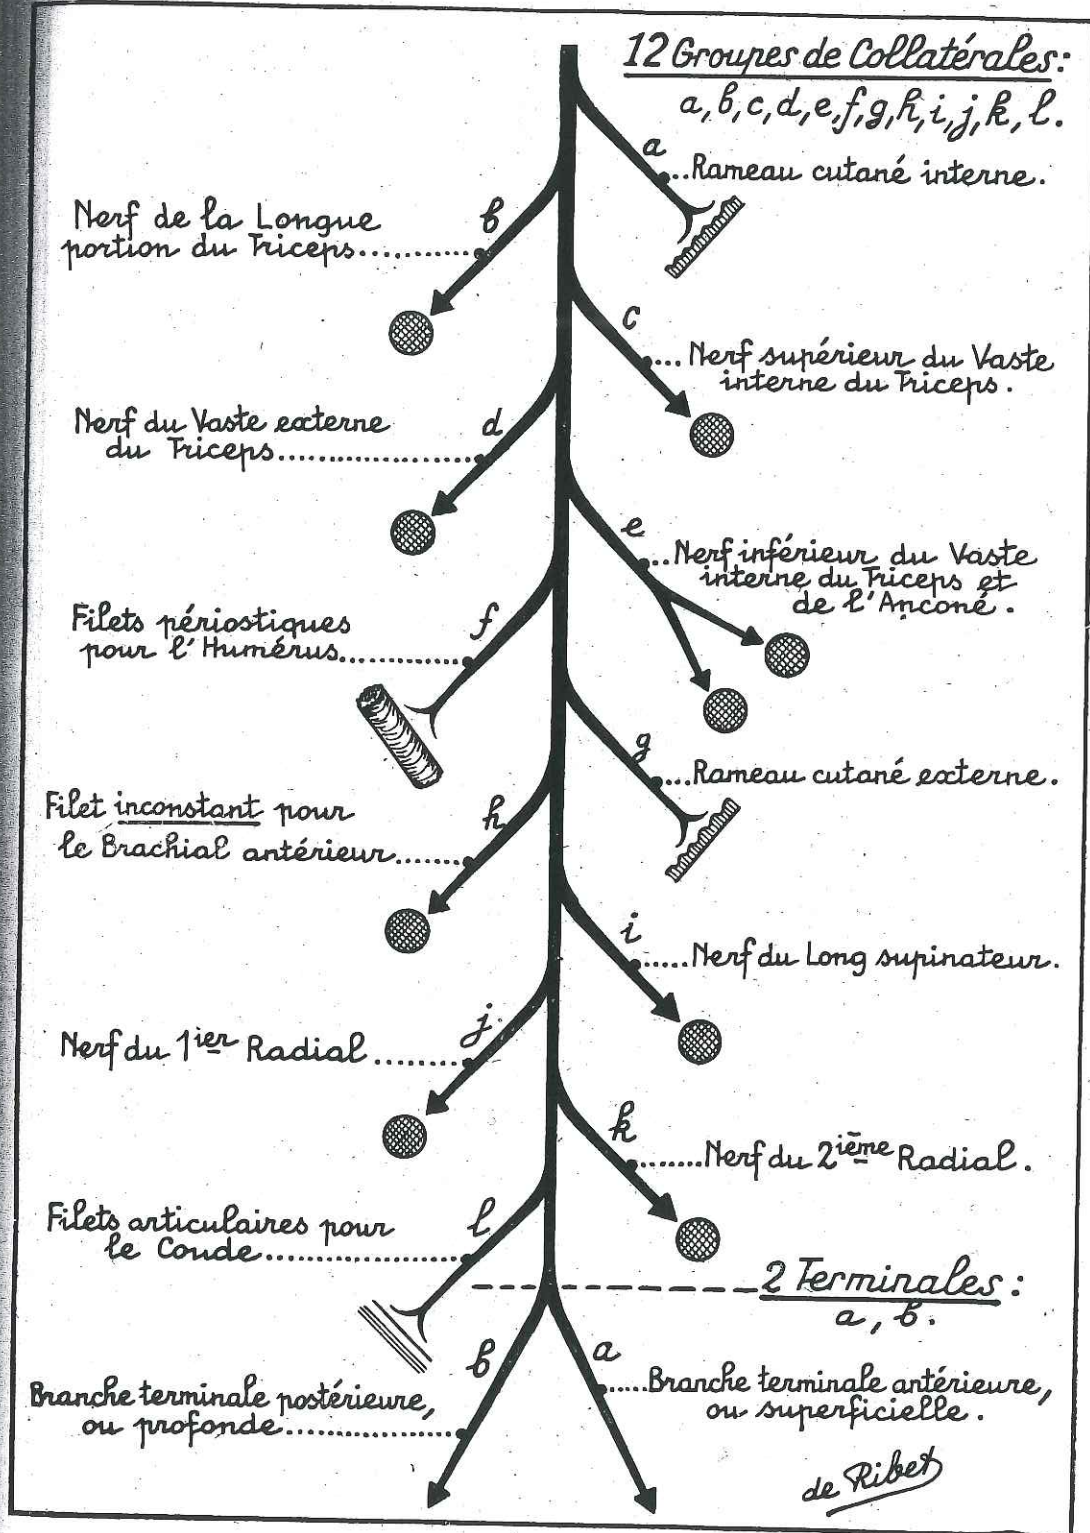 12 Groupes de Collatérales:
a, b, c, d, e, f, g, h, i, j, k, l.
a
..Rameau cutané interne.
b
Nerf de la Longue
portion du Triceps...........
c
....Nerf supérieur du Vaste
interne du Triceps.
d
Nerf du Vaste externe
du Triceps......................
e
..Nerf inférieur du Vaste
interne du Triceps et
de l'Anconé.
f
Filets périostiques
pour l'Humérus..............
g
...Rameau cutané externe.
h
Filet inconstant pour
le Brachial antérieur.......
i
.....Nerf du Long supinateur.
j
Nerf du 1ier Radial..........
k
.......Nerf du 2ième Radial.
l
Filets articulaires pour
le Coude......................
2 Terminales:
a, b.
b
Branche terminale postérieure,
ou profonde...................
a
.....Branche terminale antérieure,
ou superficielle.
de Ribet